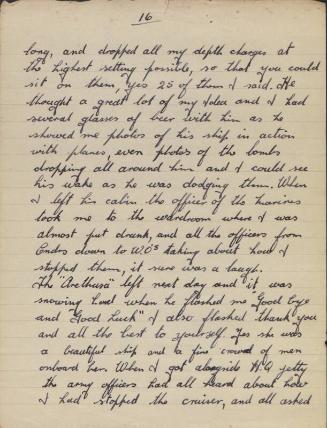 16
long, and dropped all my depth charges at
the highest setting possible, so that you could
sit on them, yes 25 of them I said. He
thought a great lot of my idea and I had
several glasses of beer with him as he
showed me photos of his ship in action
with planes, even photos of the bombs
dropping all around him and I could see
his wake as he was dodging them. When
I left his cabin the officer of the marines
took me to the wardroom where I was
almost put drunk, and all the officers from
down to W.Os talking about how I
stopped them, it sure was a laugh.
The "Arethusa" left next day and it was
snowing hard when he flashed me "Good bye
and "Good Luck" I also flashed thank you
and all the best to yourself. Yes she was
a beautiful ship and a fine crowd of men
onboard her. When I got alongside H.Q jetty
the army officers had all heard about how
I had stopped the cruiser, and all asked